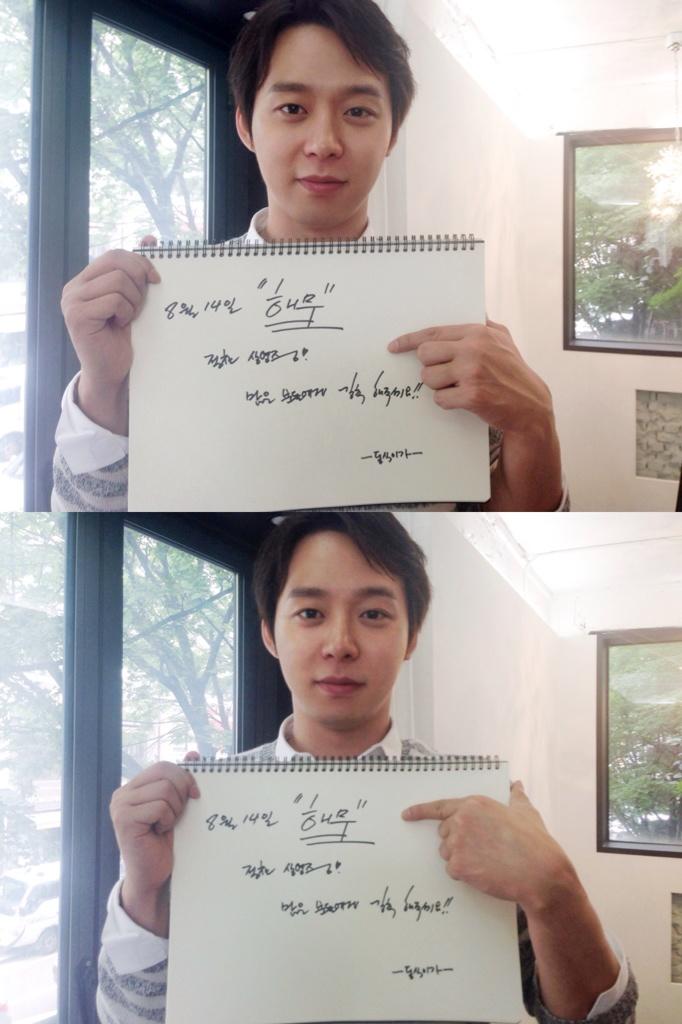 8월 14일 "해무"
절찬 상영중!
많은 분들에게 강추 해주세요!!
-동식이가-
8월 14일 "해무"
절찬 상영중!
많은 분들에게 강추 해주세요!!
-동식이가-